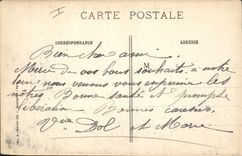 I
CARTE POSTALE
CORRESPONDANCE
ADRESSE
Bien cher ami
Merci de vos bons souhaits, à notre
tour nous venons vous exprimer les
nôtres Bonne santé et prompte
libération Bonnes
et Marie